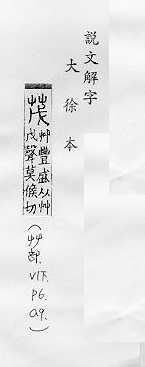 説文解字
大徐本
茂
艸豐盛从艸
戊聲莫候切
(艸部.
V1下.
P6.
a9.)